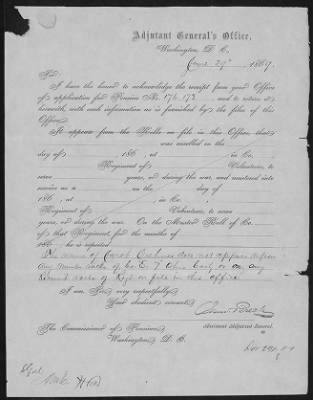 Adjutant General's Office,
Washington, D. C.
June 29", 1869.
Sir:
I have the honor to acknowledge the receipt from your Office
of application for Pension No. 176.173, and to return it
herewith, with such information as is furnished by the files of this
Office.
It appears from the Rolls on file in this Office, that
was enrolled on the
day of 186 , at , in Co.
Regiment of Volunteers, to
serve years, or during the war, and mustered into
service as a on the day of
186 , at , in Co.
Regiment of Volunteers, to serve
years, or during the war. On the Muster Roll of Co.
of that Regiment, for the months of
186 , he is reported
The name of does not appear upon
any muster rolls of Co. E. 7 Ohio Cav'y or on any
rolls of Reg't on file in this Office
I am, Sir, very respectfully,
Your obedient servant,
Assistant Adjutant General.
The Commissioner of Pensions,
Washington, D. C.